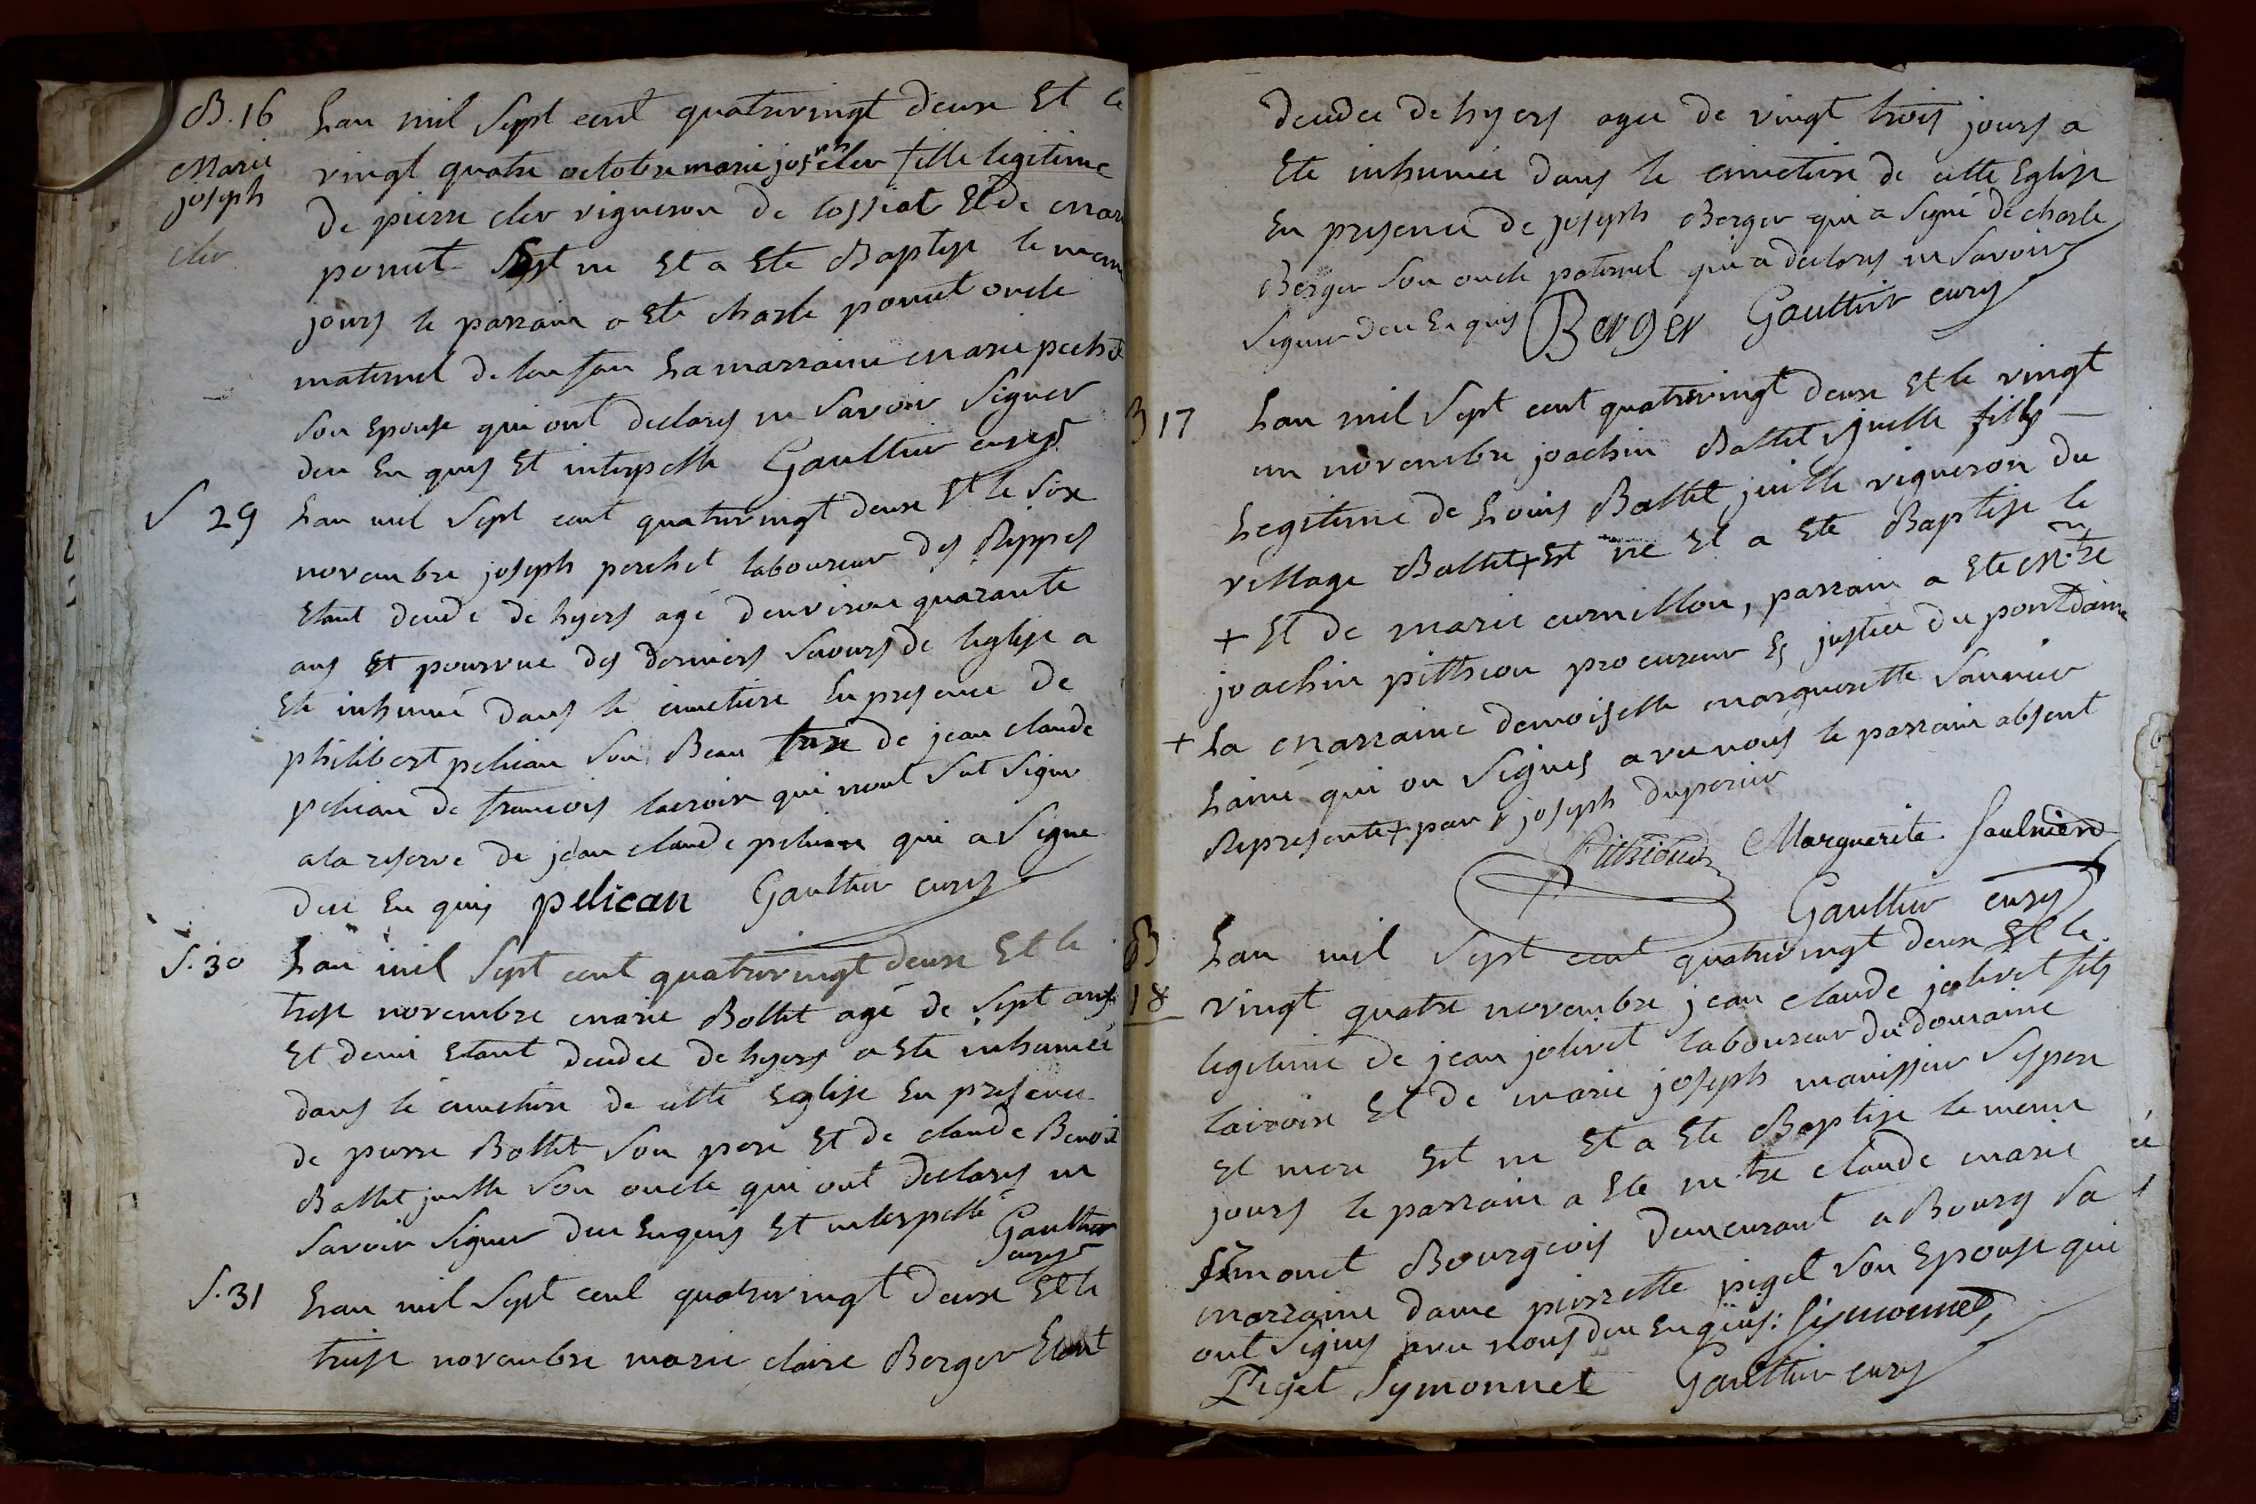 B. 16 Lan mil Sept cent quatrevingt deux Et le
Marie vingt quatre octobre marie jos^ph cler fille legitime
joseph de pierre cler vigneron de cossiat Et de mar
cler ponut Est ne Et a Ete Baptise le mem
jours le parrain a Ete charle ponut oncle
maternel de lenfan La marraine marie pechet
son Epouse qui ont declares ne savoir signer
deu En quis Et interpelle Gaultier curey
S 29 Lan mil Sept cent quatrevingt deux Et le six
novembre joseph perchet laboureur des Rippes
Etant decede de hyers agé denviron quarante
ans Et pourvue des derniers secours de leglise a
Ete inhumé dans le cimetiere En presence de
philibert pelican son Beau frere de jean claude
pelican de francois lacroix qui nont sut signer
a la reserve de jean claude pelican qui a signe
deu En quis pelican Gaultier curey
S. 30 Lan mil Sept cent quatrevingt deux Et le
treise novembre marie Bollet agé de sept ans
Et demi Etant decedee de hyers a Ete inhumée
dans le cimetiere de cette Eglise En presence
de pierre Bollet son pere Et de claude Benoit
Bollet juille son oncle qui ont declares ne
savoir signer deu Enquis Et interpellé Gaultier
curey
S. 31 Lan mil Sept cent quatrevingt deux Et le
treise novembre marie claire Berger Etant
decedee de hyers agee de vingt trois jours a
Ete inhumée dans le cimetiere de cette Eglise
En presence de joseph Berger qui a signé de charle
Berger son oncle paternel qui a declares ne savoir
signer deu Enquis Berger Gaultier curey
B 17 Lan mil Sept cent quatrevingt deux Et le vingt
un novembre joachin Bollet juille fils
Legitime de Louis Bollet juille vigneron du
village Bollet + Est ne Et a Ete Baptise le
+ Et de marie curnillon, parrain a Ete M.tre
joachin pithiou procureur Es justice du pontdain
+ La Marraine demoiselle marguerette Saunier
Lainé qui on signes avec nous le parrain absent
Represente + par joseph duperier
Pithioud Marguerite Saulnier
Gaultier curey
B Lan mil Sept cent quatrevingt deux Et le
18 vingt quatre novembre jean claude jolivet fils
legitime de jean jolivet laboureur du domaine
lacroix Et de marie joseph manissier ses pere
Et mere Est ne Et a Ete Baptise le meme
jours le parrain a Ete me tre claude marie
Simonet Bourgeois demeurant a Bourg Sa
marraine dame pierrette piget son Epouse qui
ont signes avec nous deu Enquis: Symonnet,
Piget Symonnet Gaultier curey